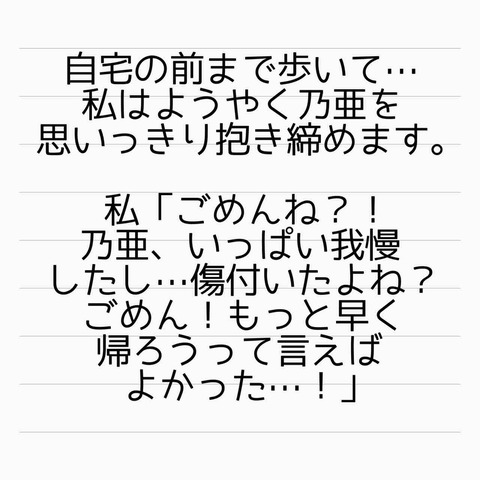 自宅の前まで歩いて…
私はようやく乃亜を
思いっきり抱き締めます。
私「ごめんね？！
乃亜、いっぱい我慢
したし…傷付いたよね？
ごめん！もっと早く
帰ろうって言えば
よかった…！」